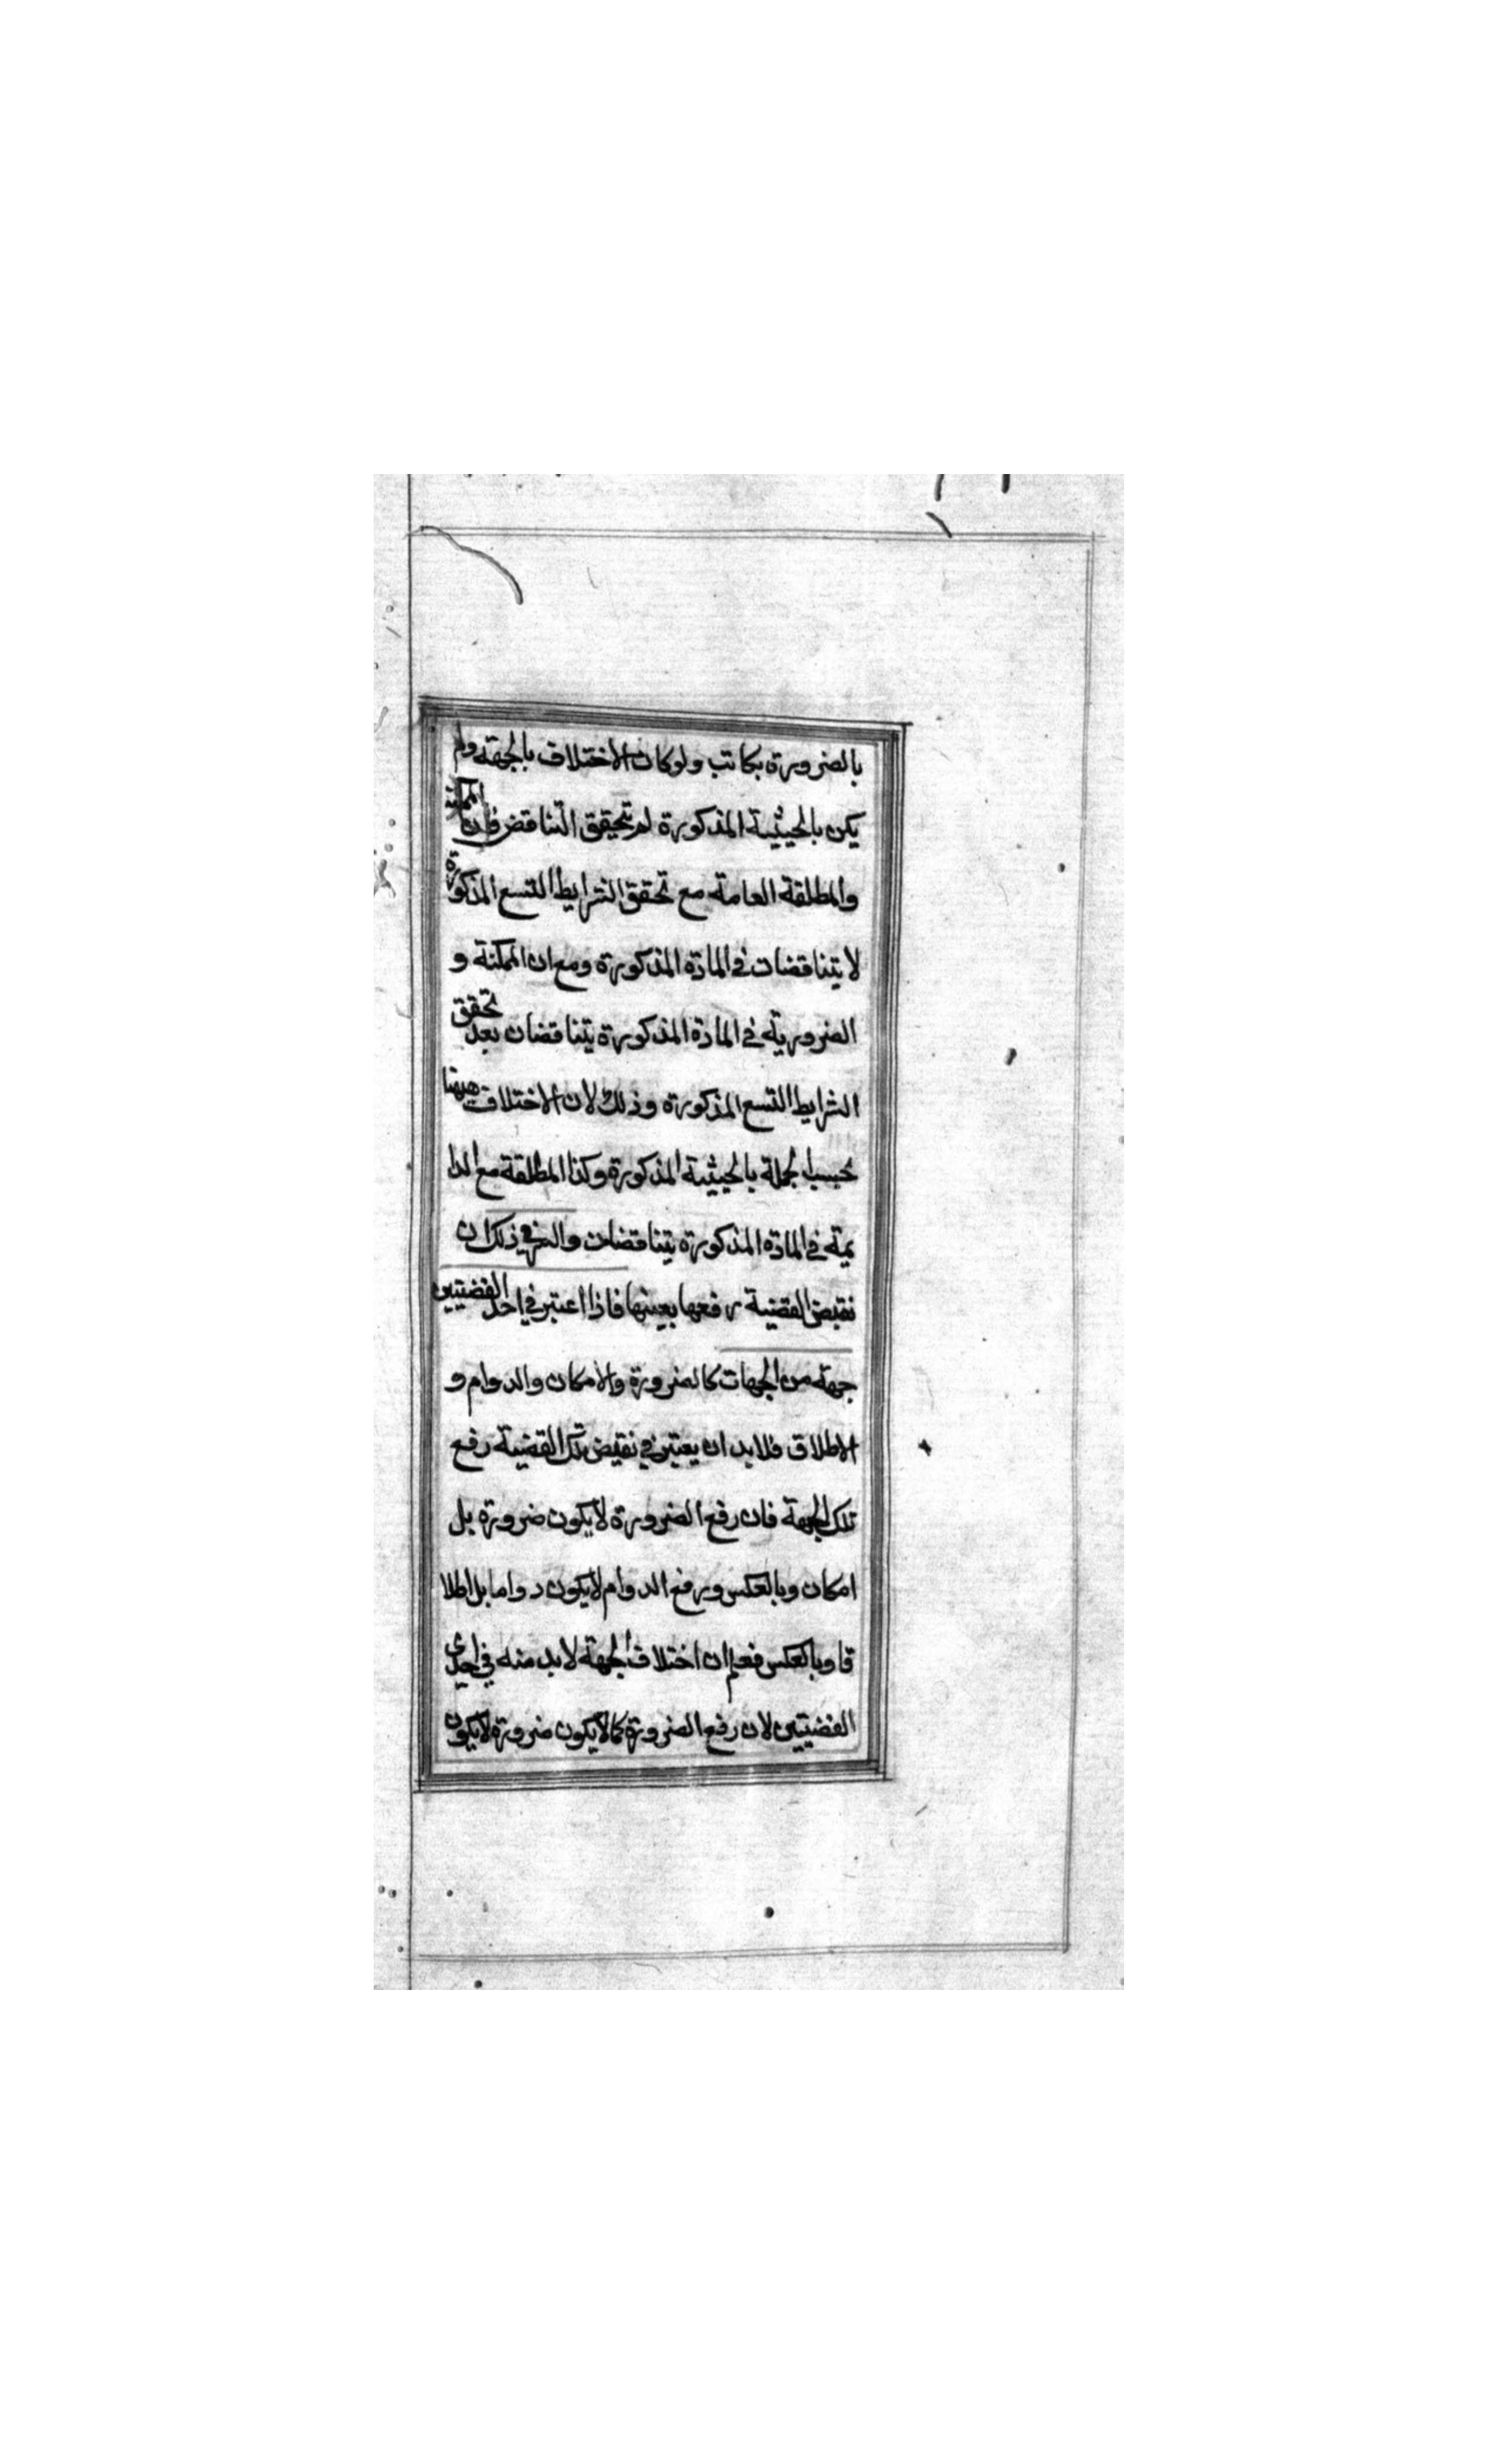 بالضرورة بكاتب ولو كان الاختلاف بالجهة ولم
يكن بالحيثية المذكورة لم يتحقق التناقض فان الممكنة
والمطلقة العامة مع تحقق الشرايط التسع المذكورة
لا يتناقضان في المادة المذكورة ومع ان الممكنة و
الضرورية في المادة المذكورة يتناقضان بعد تحقق
الشرايط التسع المذكورة وذلك لان الاختلاف ههنا
بحسب الجملة بالحيثية المذكورة وكذا المطلقة مع الدا
يمة في المادة المذكورة يتناقضان والسر في ذلك ان
نقيض القضية رفعها بعينها فاذا اعتبر في احد القضيتين
جهة من الجهات كالضرورة والامكان والدوام و
الاطلاق فلا بد ان يعتبر في نقيض تلك القضية رفع
تلك الجهة فان رفع الضرورة لا يكون ضرورة بل
امكان وبالعكس ورفع الدوام لا يكون دواما بل اطلا
قا وبالعكس فعلم ان اختلاف الجهة لا بد منه في احدى
القضيتين لان رفع الضرورة كما لا يكون ضرورة لا يكون